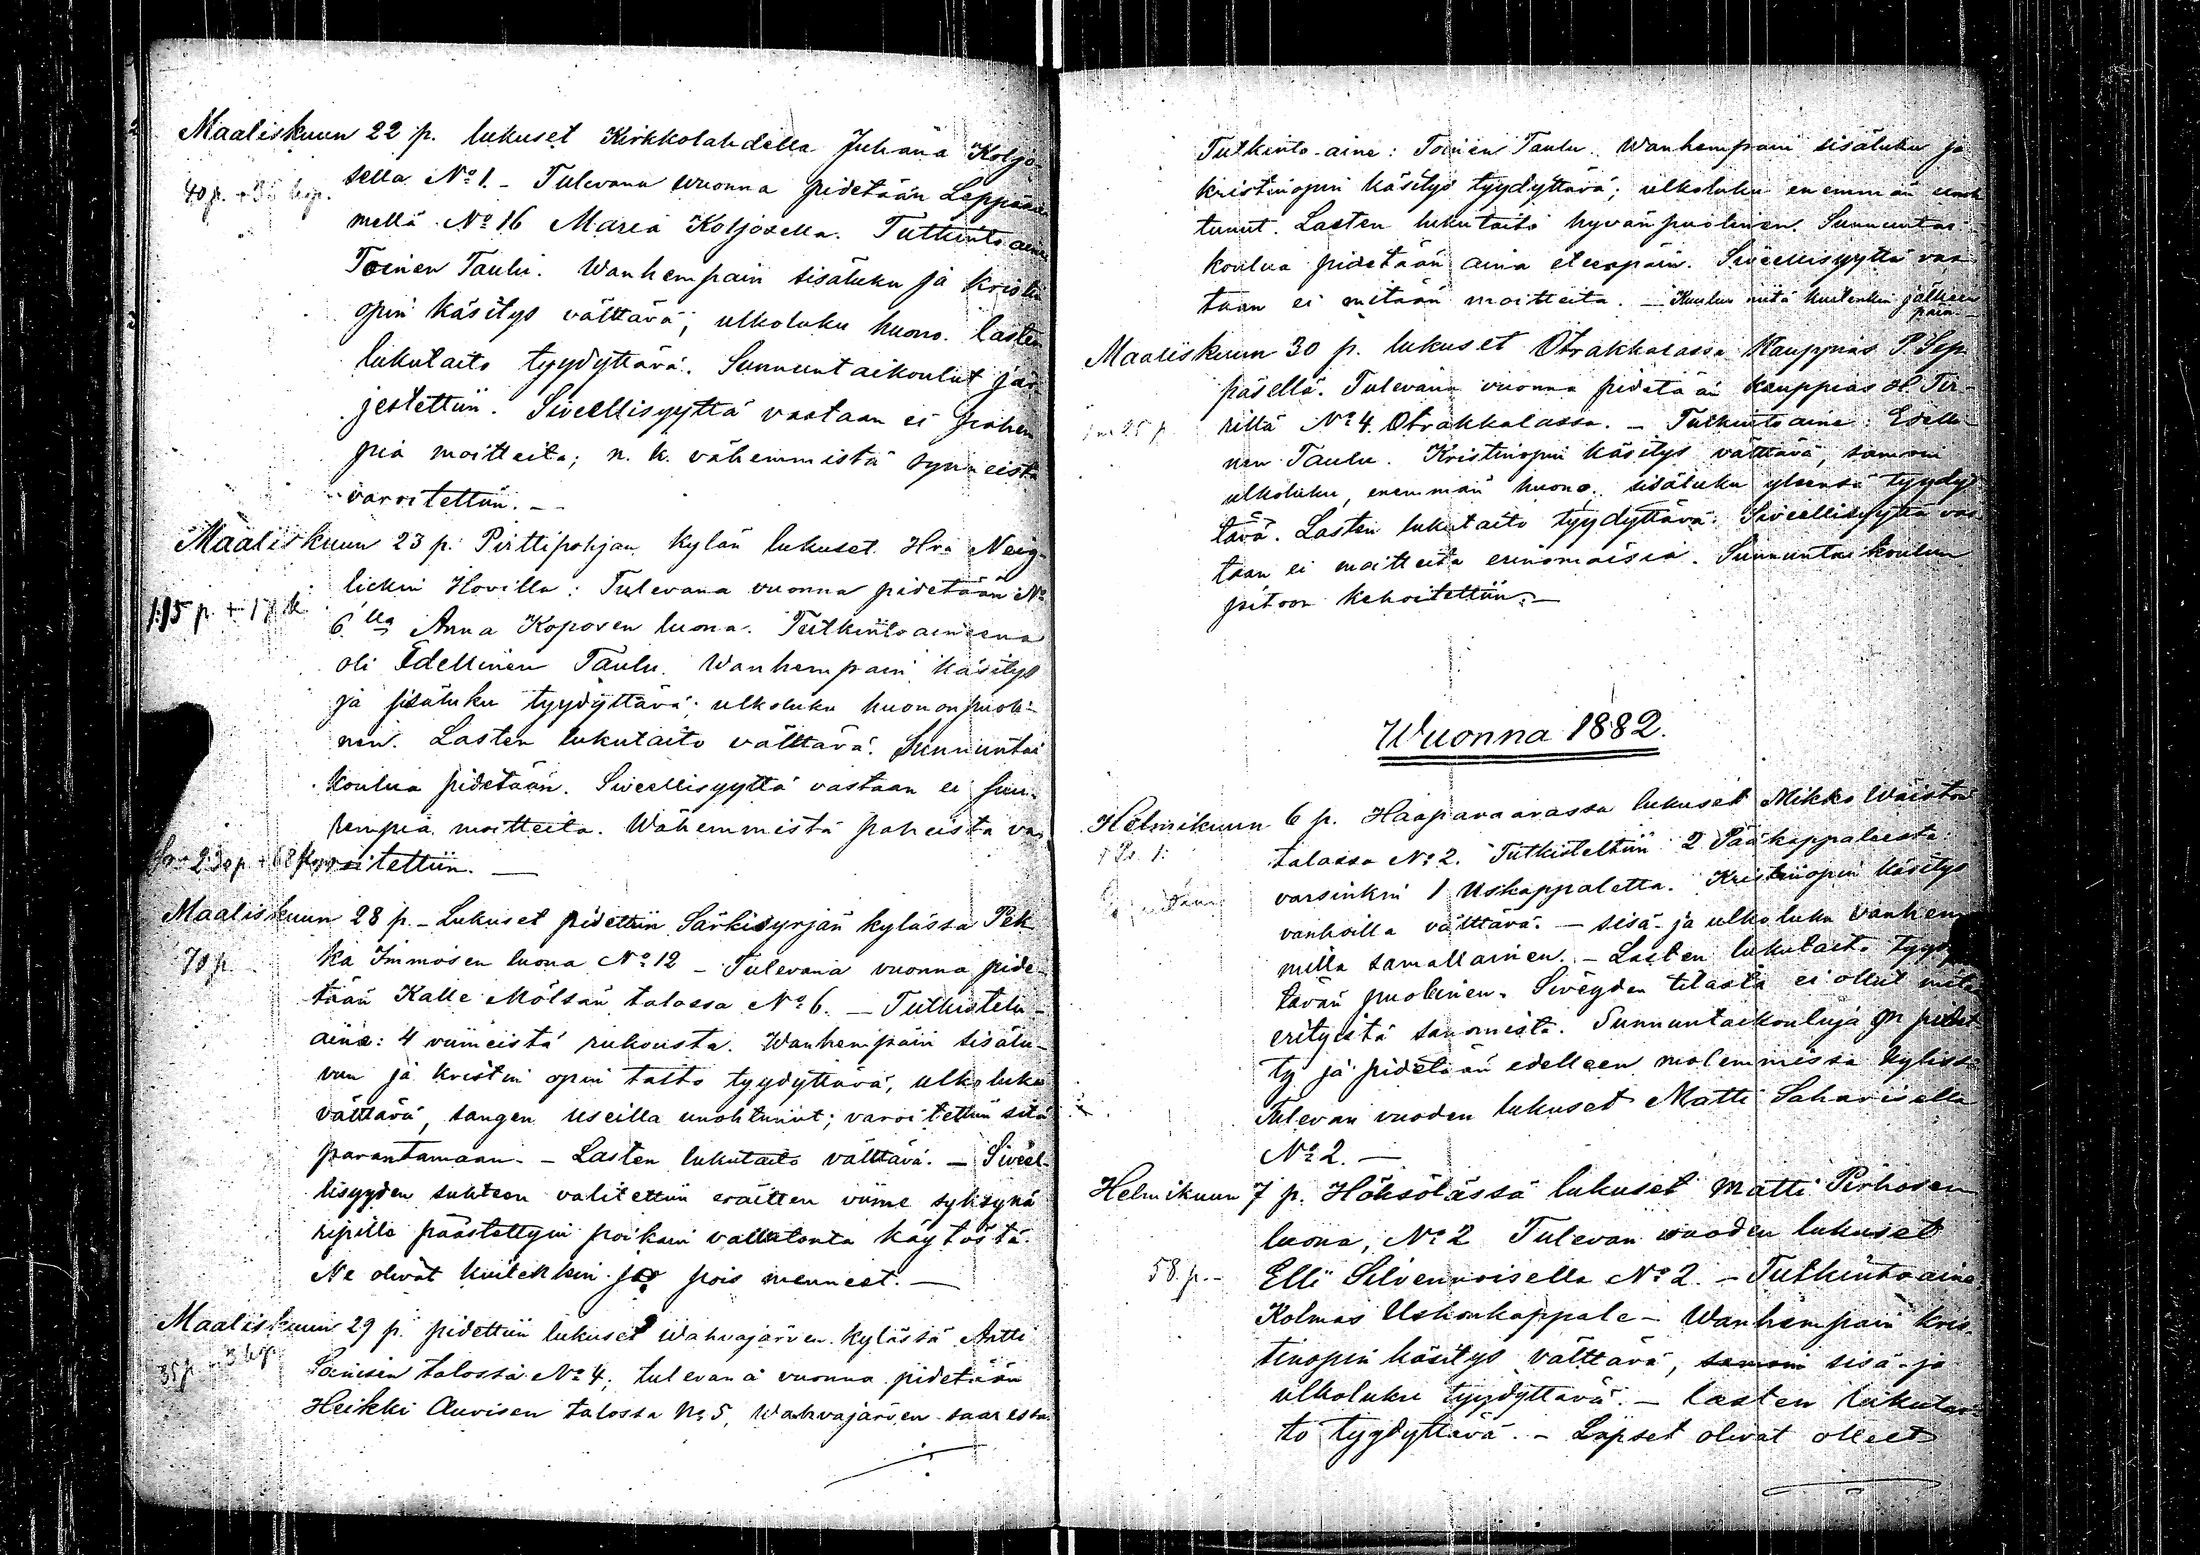 Maaliskuun 22 p. lukuset Kirkkolahdella Juhana Koljo-
40 p.
sella No 1. – Tulevana vuonna pidetään Leppänie
mellä No 16 Maria Koljosella. Tutkinto aine
Toinen Taulu. Wanhempain sisäluku ja kristin
opin käsitys välttävä; ulkoluku huono. Lasten
lukutaito tyydyttävä. Sunnuntaikoulut jär-
jestettiin. Siveellisyyttä vastaan ei pahem
pia moitteita; n. k. vähemmistä synneistä
varoitettiin. –
Maaliskuun 23 p. Pirttipohjan kylän lukuset Hra Neig-
lickin Hovilla: Tulevana vuonna pidetään No
6 lla Anna Koposen luona. Tutkintoaineena
oli Edellinen Taulu. Wanhempain käsitys
ja sisäluku tyydyttävä; ulkoluku huononpuoli-
nen. Lasten lukutaito välttävä. Sunnuntai
koulua pidetään. Siveellisyyttä vastaan ei suu-
rempia moitteita. Wähemmistä paheista va-
roitettiin. —
Maaliskuun 28 p. – Lukuset pidettiin Särkisyrjän kylässä Pek
70 p.
ka Immosen luona No 12 – Tulevana vuonna pide-
tään Kalle Mölsän talossa No 6. — Tutkistelu-
aine: 4 viimeistä rukousta. Wanhempain sisälu-
vun ja kristin opin taito tyydyttävä, ulkoluku
välttävä, sangen useilla unohtunut; varoitettiin sitä
parantamaan. – Lasten lukutaito välttävä. – Siveel-
lisyyden suhteen valitettiin eräitten viime syksynä
ripille päästettyin poikain vallatonta käytöstä.
Ne olivat kuitenkin jo pois menneet. —
Maaliskuun 29 p. pidettiin lukuset Wahvajärven kylässä Antti
35 p.
Sainisen talossa No 4, tulevana vuonna pidetään
Heikki Auvisen talossa No 5, Wahvajärven saaressa.
Tutkinto-aine: Toinen Taulu. Wanhempain sisäluku ja
kristinopin käsitys tyydyttävä; ulkoluku enemmän unoh
tunut. Lasten lukutaito hyvänpuolinen. Sunnuntai-
koulua pidetään aina eteenpäin. Siveellisyyttä vas
taan ei mitään moitteita. – Kuului niitä kuitenkin jälkeen
päin. –
Maaliskuun 30 p. lukuset Otrakkalassa Kauppias P. Sep-
päsellä. Tulevana vuonna pidetään kauppias H. Tir-
rillä No 4. Otrakkalassa. – Tutkintoaine: Edelli-
nen Taulu. Kristinopin käsitys välttävä, samoin
ulkoluku, enemmän huono, sisäluku yleensä tyydyt
tävä. Lasten lukutaito tyydyttävä. Siveellisyyttä vas
taan ei moitteita erinomaisia. Sunnuntaikoulun
pitoon kehoitettiin. —
Wuonna 1882.
Helmikuun 6 p. Haapavaarassa lukuset Mikko Wäistön
talossa No 2. Tutkisteltiin 2 Pääkappaleesta
varsinkin 1 Uskappaletta. Kristinopin käsitys
vanhoilla välttävä. — sisä- ja ulkoluku vanhem
milla samallainen. – Lasten lukutaito tyydyt
tävän puolinen. Siveyden tilasta ei ollut mitään
erityistä sanomista. Sunnuntaikouluja on pidet
ty ja pidetään edelleen molemmissa kylissä
Tulevan vuoden lukuset Matti Saharisella
No 2. —
Helmikuun 7 p. Höksölässä lukuset Matti Pirhosen
luona, No 2 Tulevan vuoden lukuset
58 p. –
Elli Silvennoisella No 2. – Tutkintoaine
Kolmas Uskonkappale – Wanhempain kris-
tinopin käsitys välttävä, samoin sisä- ja
ulkoluku tyydyttävä. – Lasten lukutai-
to tyydyttävä. – Lapset olivat olleet